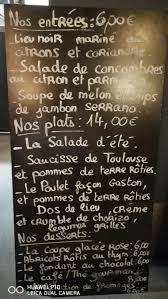 Nos entrées: 6,00€
Lieu noir mariné au
citrons et coriandre.
- Salade de concombres
au citron et parm
- Soupe de melon et chips
de jambon SERRANO.
Nos plats: 14,00€
- La Salade d'été.
- Saucisse de Toulouse
et pommes de terre
- Le Poulet façon Gaston,
et pommes de terre
- Dos de lieu, crème
et crumble de chorizo,
légumes grillés
Nos desserts:
- La coupe glacée Rose: 6,00
- Abricots rôtis au thym: 6,00
- Le fondant au chocolat: 6,00
- Le Café/Thé gourmand:
HUAWEI P10
LEICA DUAL CAMERA